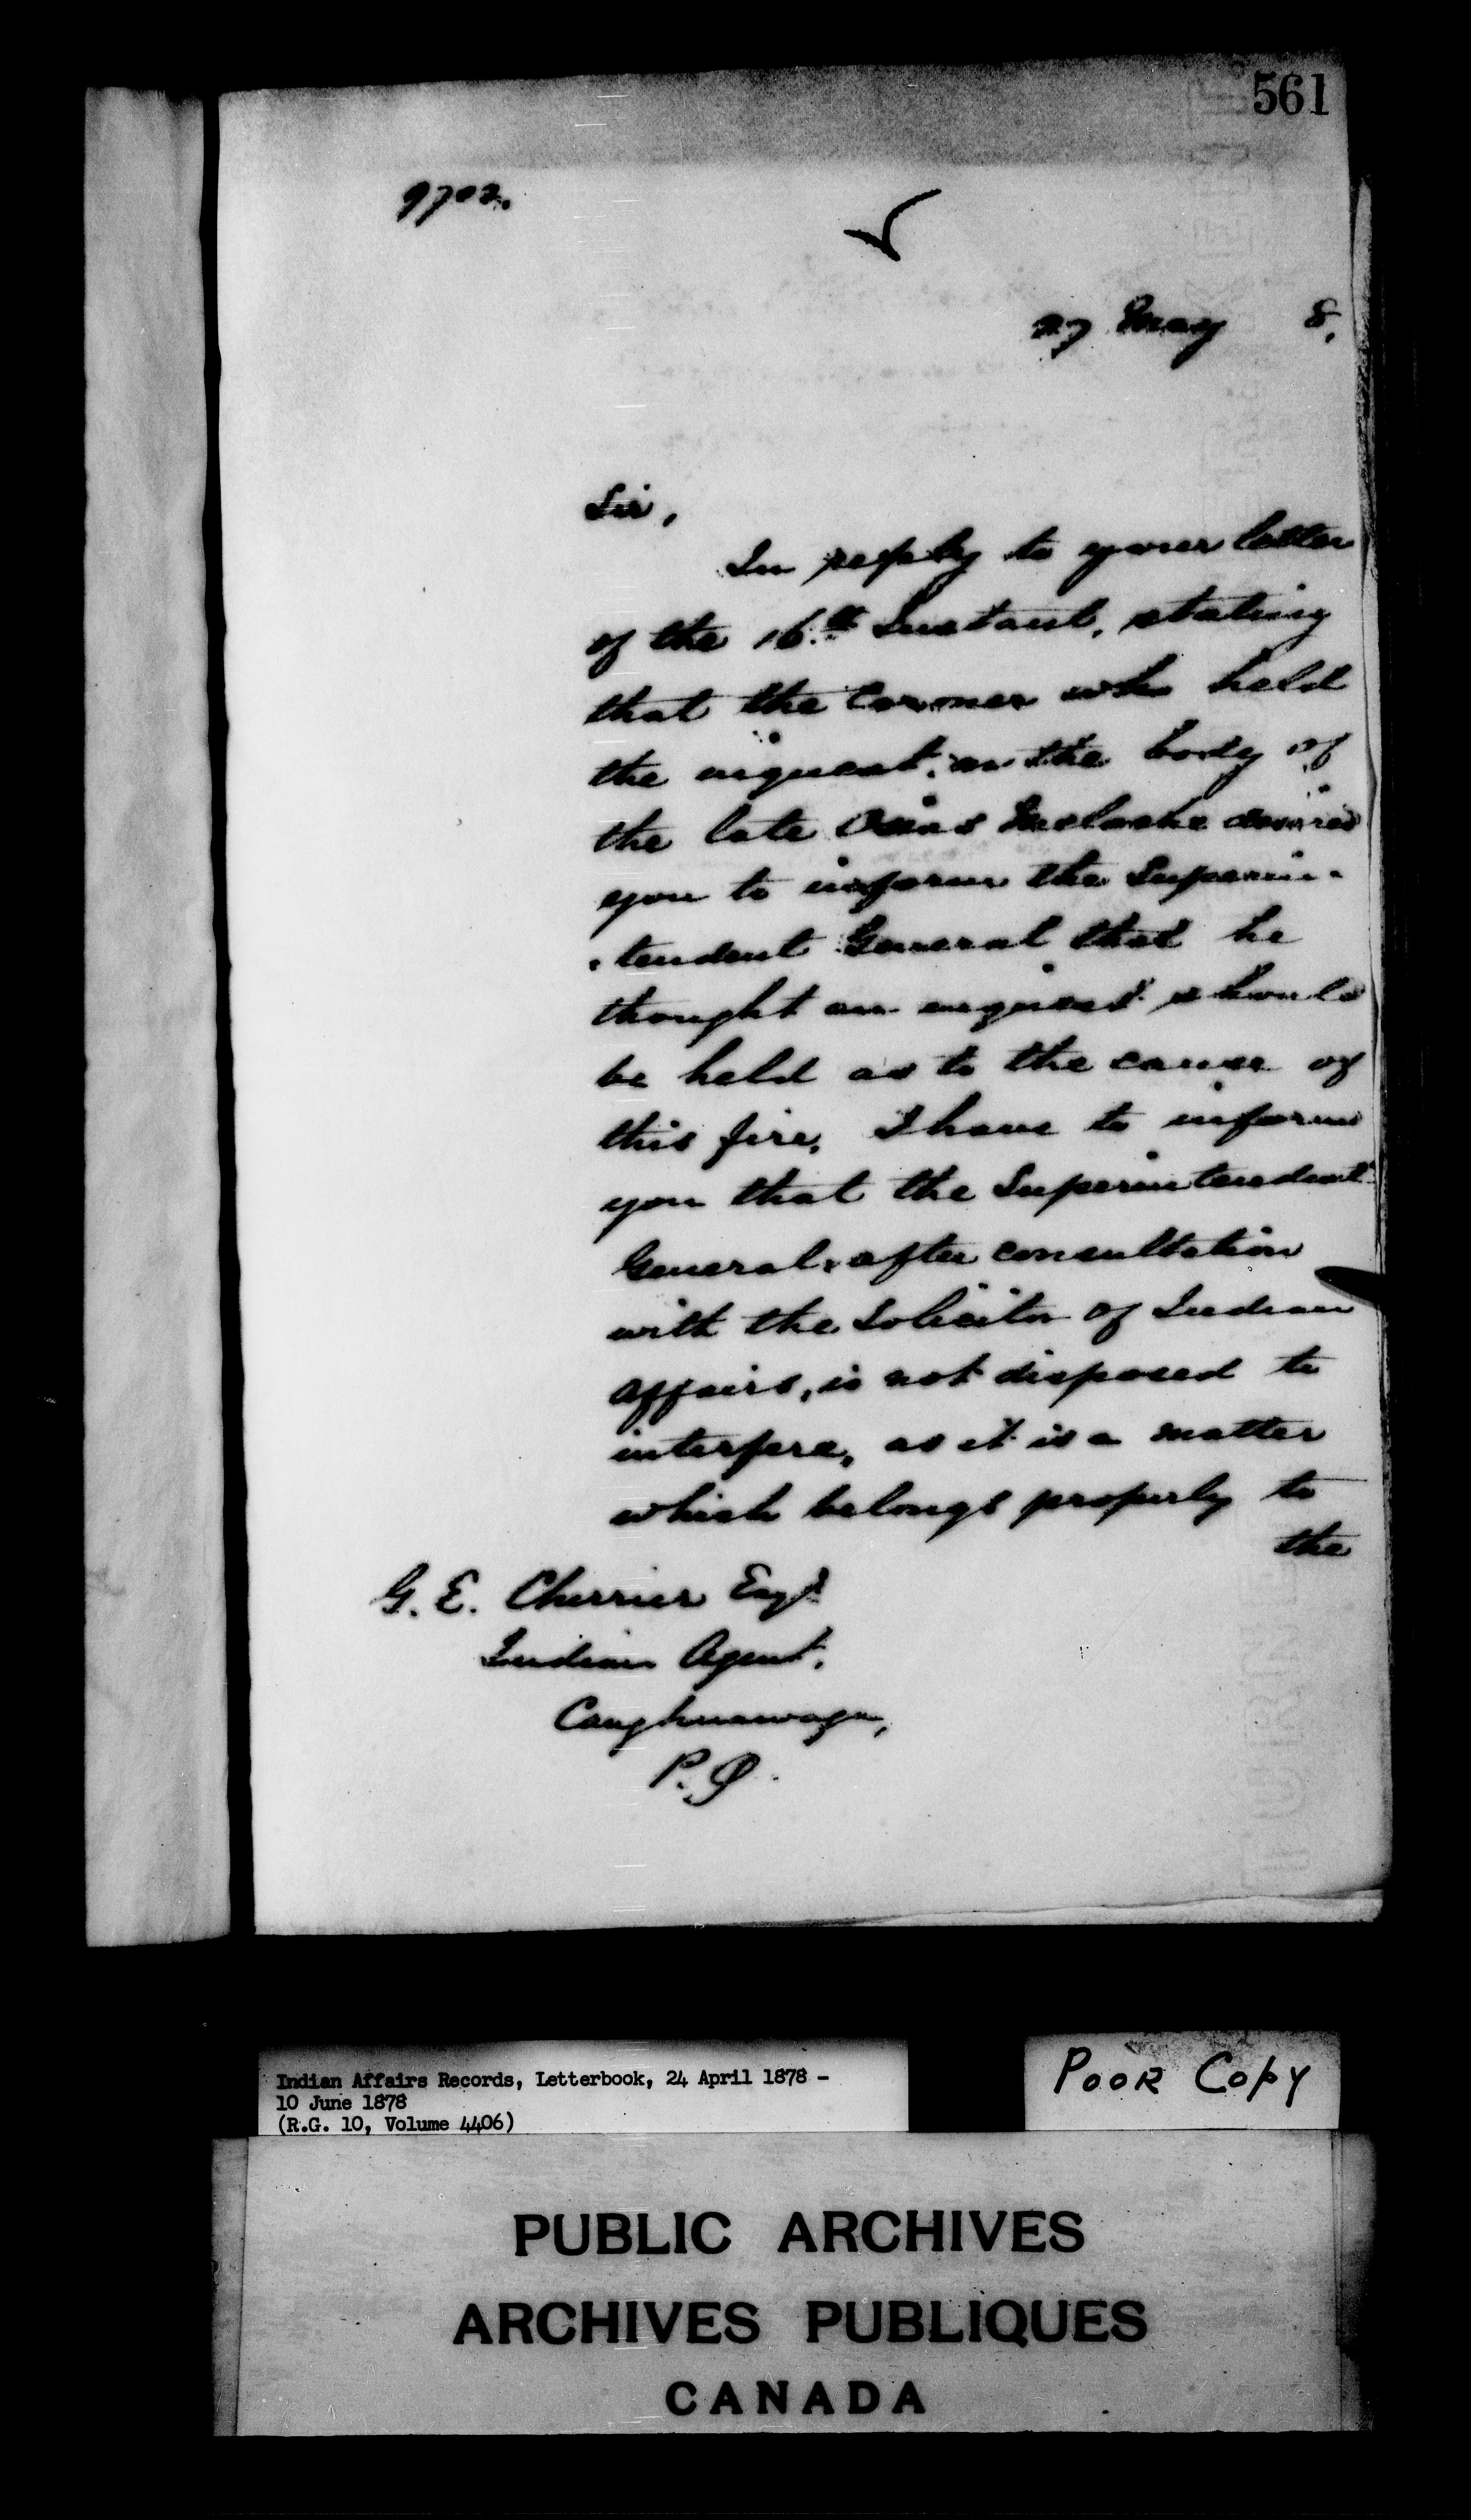 561
9702.
27 May 8,
Sir,
In reply to your letter
of the 16th Instant, stating
that the Coroner who held
the inquest on the body of
the late Osias Meloche desired
you to inform the Superin-
-tendent General that he
thought an inquest should
be held as to the cause of
this fire, I have to inform
you that the Superintendent
General, after consultation
with the Solicitor of Indian
Affairs, is not disposed to
interfere, as it is a matter
which belongs properly to
the
G. E. Cherrier Esqr
Indian Agent,
Caughnawaga,
P.Q.
Indian Affairs Records, Letterbook, 24 April 1878 -
10 June 1878
(R.G. 10, Volume 4406)
Poor Copy
PUBLIC ARCHIVES
ARCHIVES PUBLIQUES
CANADA